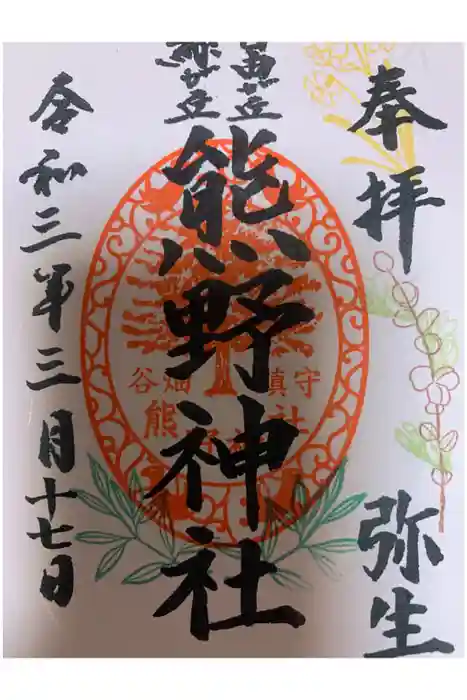 奉拝
弥生
熊野神社
谷畑鎮守
熊野神社
令和三年三月十七日